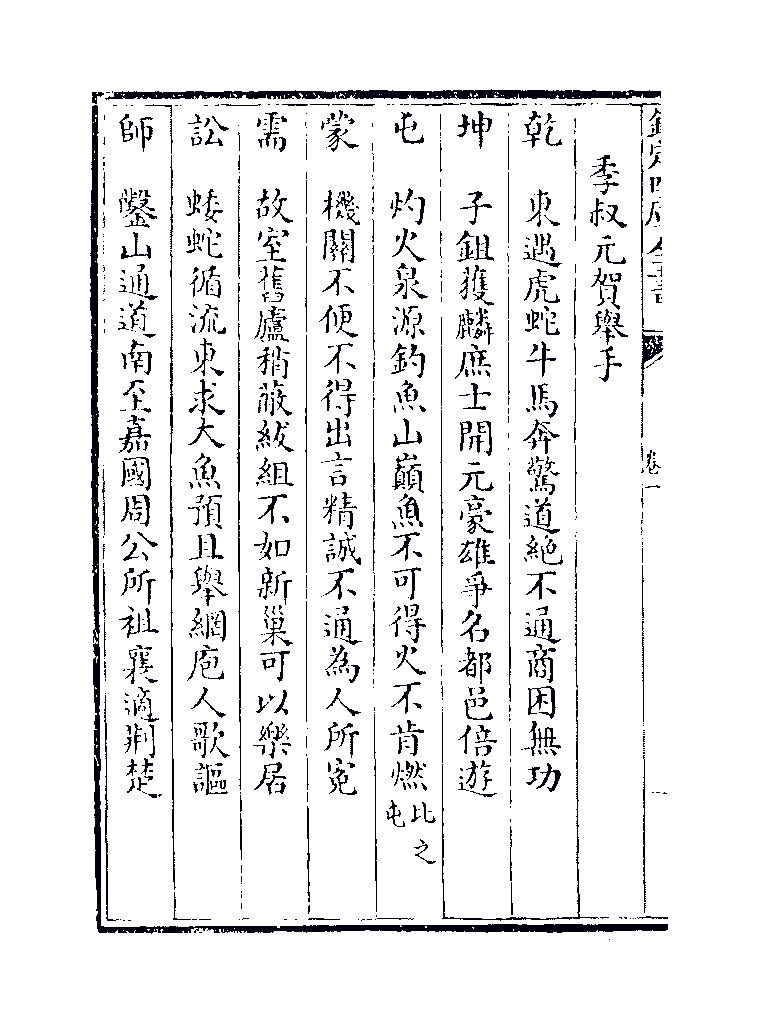 欽定四庫全書 卷一
季叔元賀舉手
乾 東遇虎蛇牛馬奔驚道絶不通商困無功
坤 子鉏獲麟庶士開元豪雄爭名都邑倍遊
屯 灼火泉源釣魚山巔魚不可得火不肯燃比之屯
蒙 機關不便不得出言精誠不通為人所寃
需 故室舊廬稍蔽紱組不如新巢可以樂居
訟 蜲蛇循流東求大魚預且舉網庖人歌謳
師 鑿山通道南至嘉國周公所祖襄適荆楚